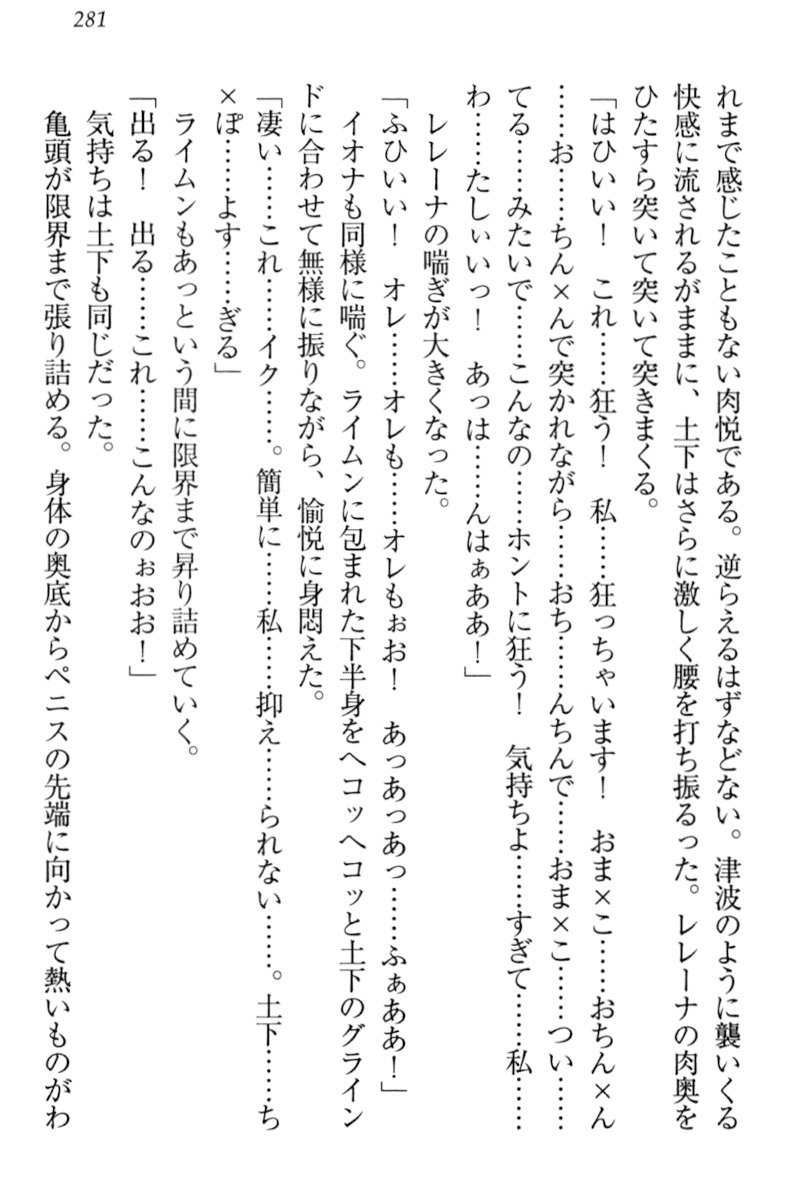 281
れまで感じたこともない肉悦である。逆らえるはずなどない。津波のように襲いくる
快感に流されるがままに、土下はさらに激しく腰を打ち振るった。レレーナの肉奥を
ひたすら突いて突いて突きまくる。
「はひいい！　これ……狂う！　私……狂っちゃいます！　おま×こ……おちん×ん
……お……ちん×んで突かれながら……おち……んちんで……おま×こ……つい……
てる……みたいで……こんなの……ホントに狂う！　気持ちよ……すぎて……私……
わ……たしぃいっ！　あっは……んはぁああ！」
レレーナの喘ぎが大きくなった。
「ふひいい！　オレ……オレも……オレもぉお！　あっあっあっ……ふぁああ！」
イオナも同様に喘ぐ。ライムンに包まれた下半身をヘコッヘコッと土下のグライン
ドに合わせて無様に振りながら、愉悦に身悶えた。
「凄い……これ……イク……。簡単に……私……抑え……られない……。土下……ち
×ぽ……よす……ぎる」
ライムンもあっという間に限界まで昇り詰めていく。
「出る！　出る……これ……こんなのぉおお！」
気持ちは土下も同じだった。
亀頭が限界まで張り詰める。身体の奥底からペニスの先端に向かって熱いものがわ